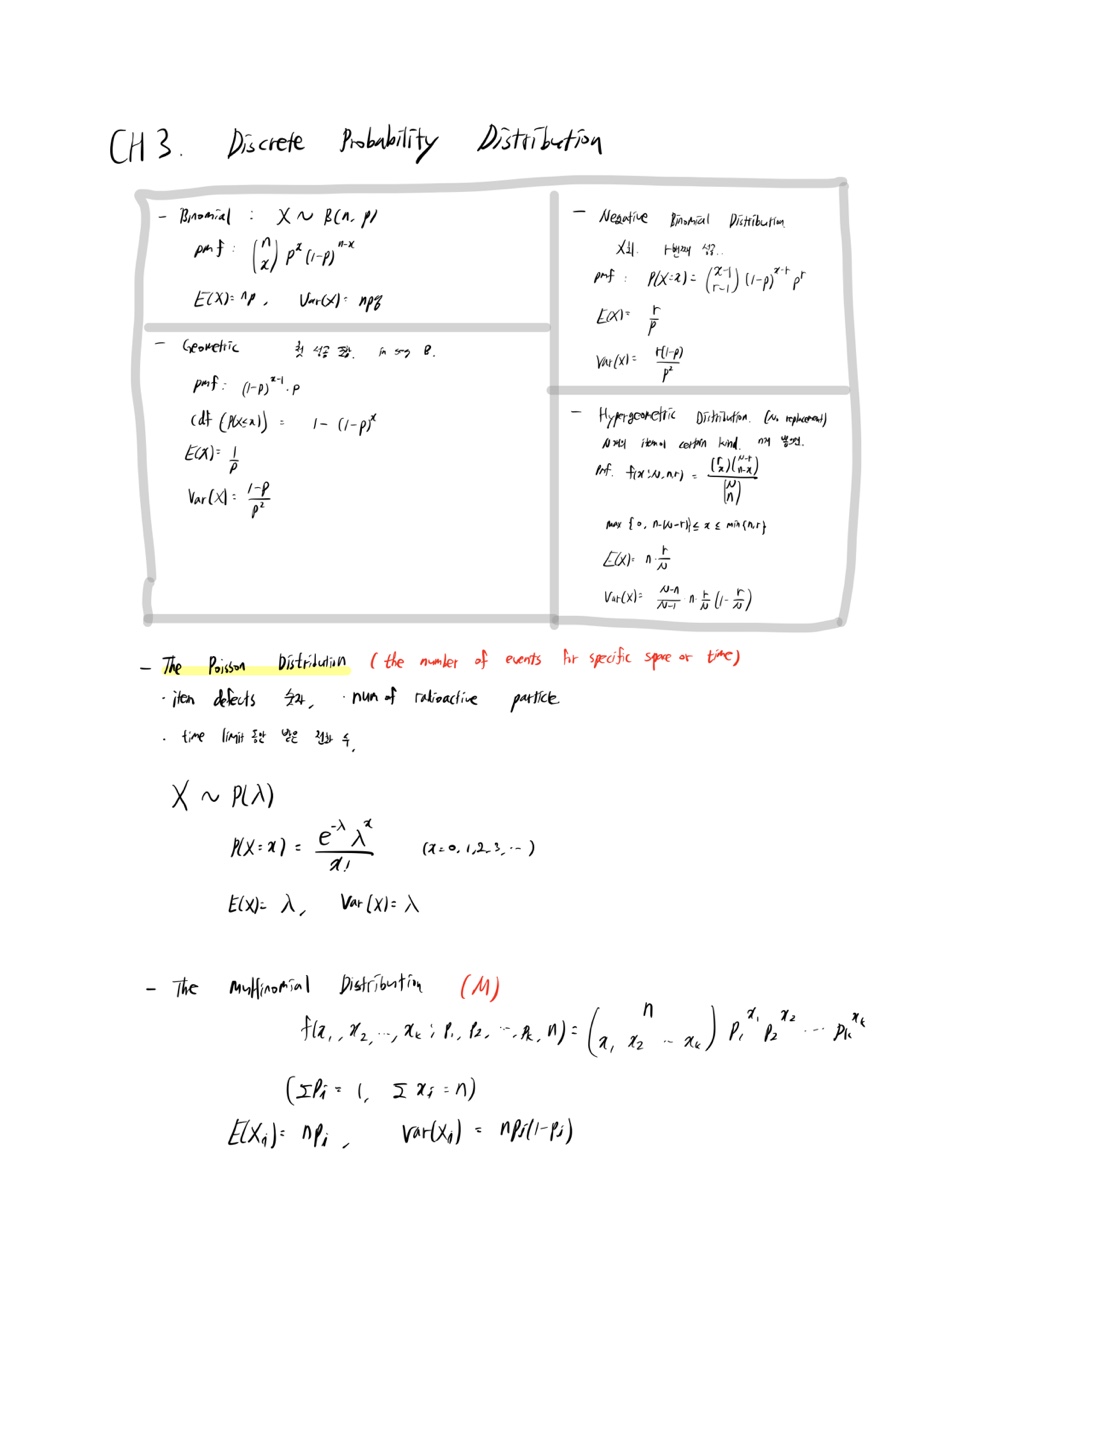 CH 3. Discrete Probability Distribution
- Binomial : X ~ B(n, p)
pmf : (n x) p^x (1-p)^{n-x}
E(X)= np, Var(X)= npq
- Geometric 첫 성공 in B.
pmf : (1-p)^{x-1} · p
cdf (P(X≤x)) = 1 - (1-p)^x
E(X)= 1/p
Var(X)= (1-p)/p^2
- Negative Binomial Distribution
X회. r번째 성공..
pmf : P(X=x) = (x-1 r-1) (1-p)^{x-r} p^r
E(X)= r/p
Var(X)= r(1-p)/p^2
- Hypergeometric Distribution. (No replacement)
N개의 item certain kind. n개
Pmf. f(x ; N, n, r) = (r x)(N-r n-x) / (N n)
max {0, n-(N-r)} ≤ x ≤ min{n, r}
E(X)= n · r/N
Var(X)= (N-n)/(N-1) n · r/N (1 - r/N)
- The Poisson Distribution (the number of events for specific space or time)
· item defects 숫자, · num of radioactive particle
· time limit 동안 받은 전화 수,
X ~ P(λ)
P(X=x) = e^{-λ} λ^x / x! (x=0, 1, 2, 3, ...)
E(X)= λ, Var(X)= λ
- The Multinomial Distribution (M)
f(x₁, x₂, ..., xₖ ; p₁, p₂, ..., pₖ, n) = (n x₁ x₂ ... xₖ) p₁^{x₁} p₂^{x₂} ... pₖ^{xₖ}
(Σpᵢ = 1, Σxᵢ = n)
E(Xᵢ)= npᵢ, Var(Xᵢ) = npᵢ(1-pᵢ)